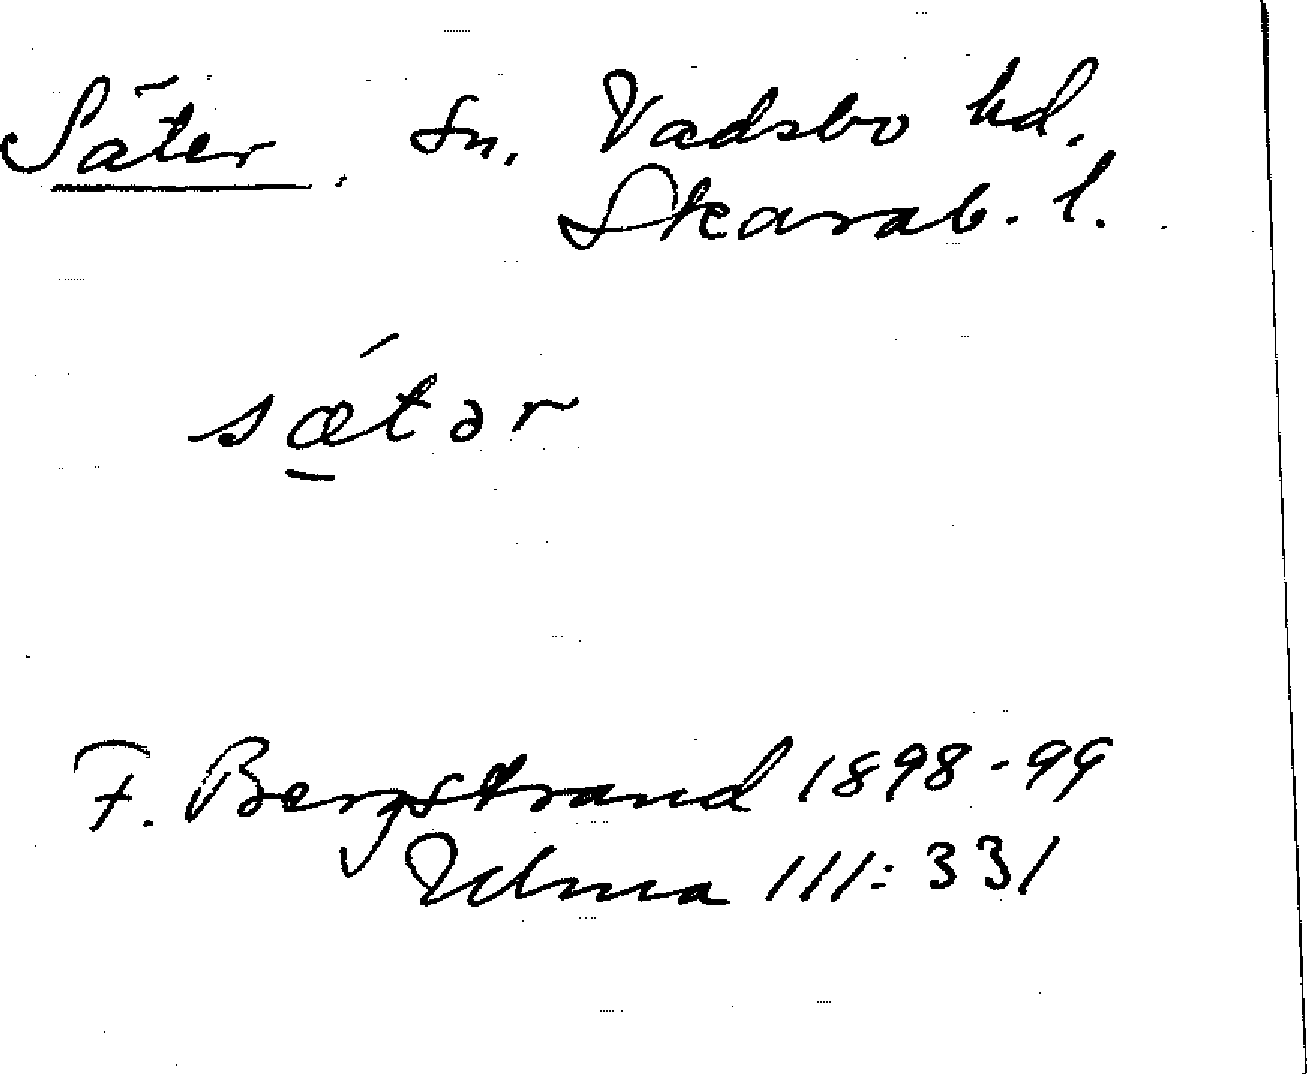 Säter. Sn. Vadsbo hd.
Skarab. l.
sǽ̱tər
F. Bergstrand 1898-99
Vdma III: 331